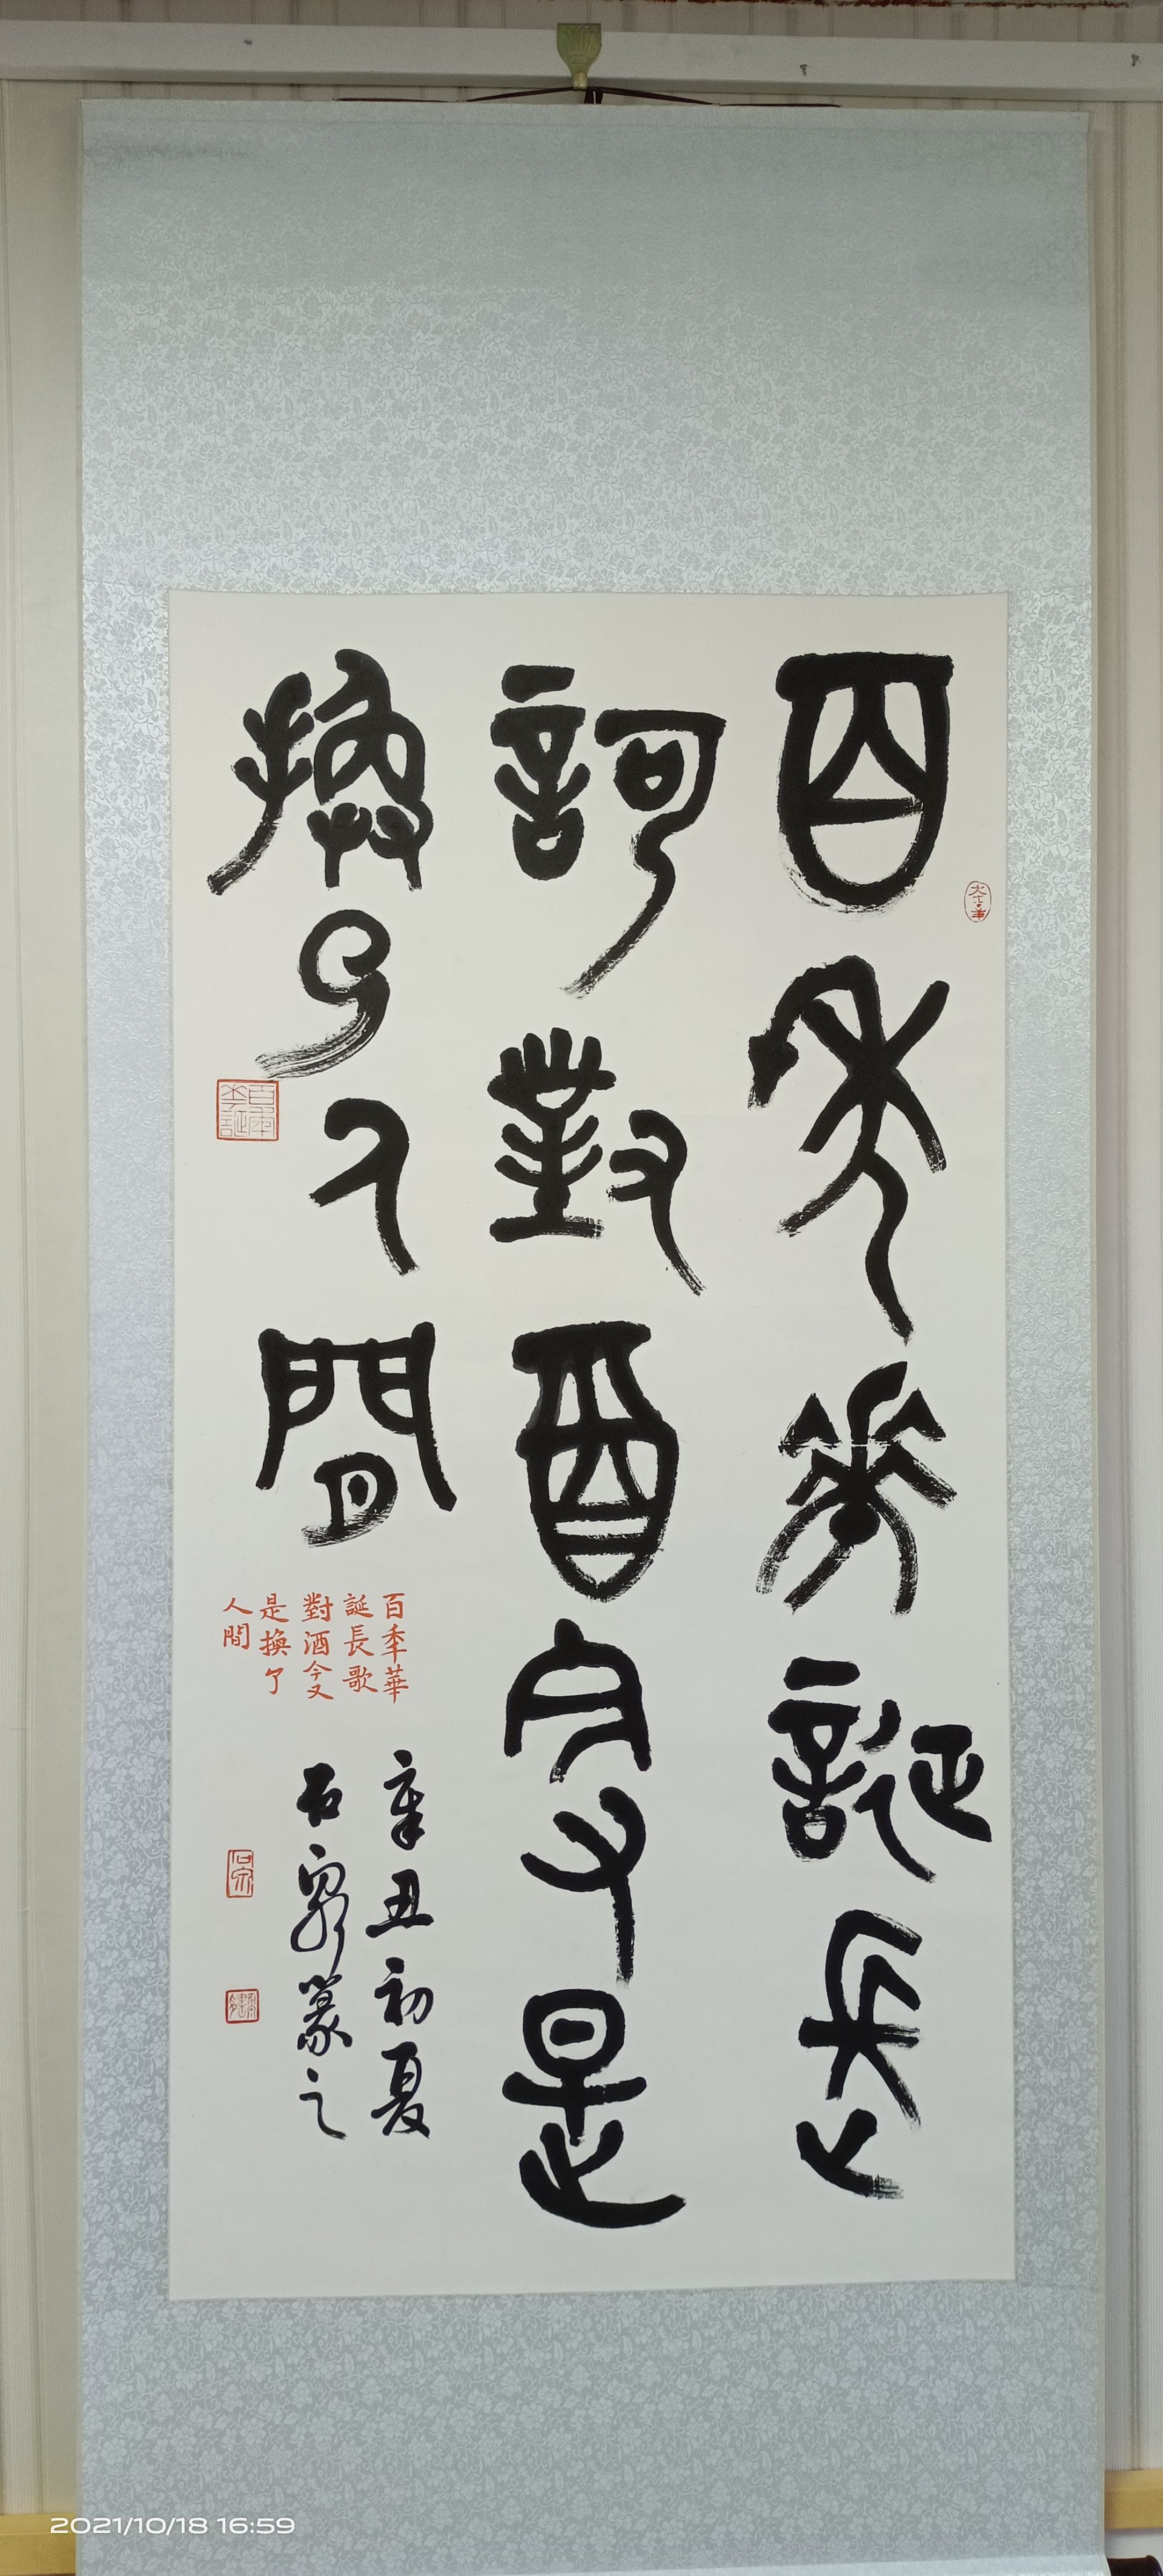 百秊華誕長
訶對酉今又是
換了人間
百秊華
誕長歌
對酒今又
是換了
人間
辛丑初夏
石泉篆之
百年華誕
石泉
2021/10/18 16:59